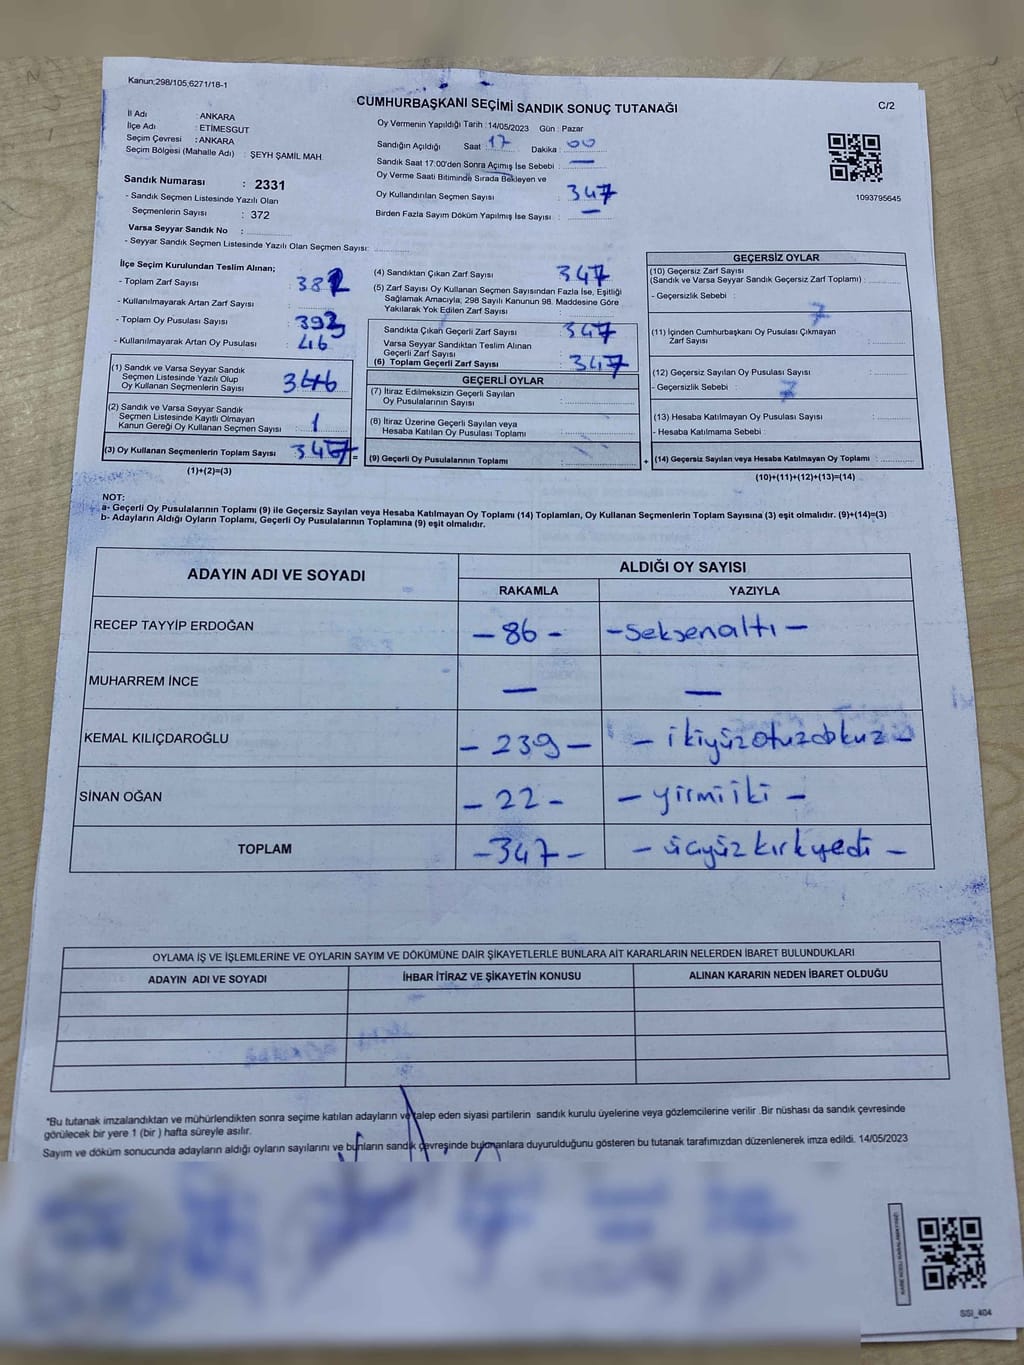 Kanun:298/105,6271/18-1
CUMHURBAŞKANI SEÇİMİ SANDIK SONUÇ TUTANAĞI
C/2
İl Adı : ANKARA
İlçe Adı : ETİMESGUT
Seçim Çevresi : ANKARA
Seçim Bölgesi (Mahalle Adı) : ŞEYH ŞAMİL MAH.
Oy Vermenin Yapıldığı Tarih :14/05/2023 Gün : Pazar
Sandığın Açıldığı Saat : 17 Dakika : 00
Sandık Saat 17:00'den Sonra Açımış İse Sebebi : —
Oy Verme Saati Bitiminde Sırada Bekleyen ve
Oy Kullandırılan Seçmen Sayısı : 347
Birden Fazla Sayım Döküm Yapılmış İse Sayısı : —
1093795645
Sandık Numarası : 2331
- Sandık Seçmen Listesinde Yazılı Olan
Seçmenlerin Sayısı : 372
Varsa Seyyar Sandık No :
- Seyyar Sandık Seçmen Listesinde Yazılı Olan Seçmen Sayısı:
İlçe Seçim Kurulundan Teslim Alınan;
- Toplam Zarf Sayısı : 382
- Kullanılmayarak Artan Zarf Sayısı :
- Toplam Oy Pusulası Sayısı : 393
- Kullanılmayarak Artan Oy Pusulası : 46
(1) Sandık ve Varsa Seyyar Sandık
Seçmen Listesinde Yazılı Olup
Oy Kullanan Seçmenlerin Sayısı : 346
(2) Sandık ve Varsa Seyyar Sandık
Seçmen Listesinde Kayıtlı Olmayan
Kanun Gereği Oy Kullanan Seçmen Sayısı : 1
(3) Oy Kullanan Seçmenlerin Toplam Sayısı : 347 =
(1)+(2)=(3)
(4) Sandıktan Çıkan Zarf Sayısı : 347
(5) Zarf Sayısı Oy Kullanan Seçmen Sayısından Fazla İse, Eşitliği
Sağlamak Amacıyla; 298 Sayılı Kanunun 98. Maddesine Göre
Yakılarak Yok Edilen Zarf Sayısı :
Sandıkta Çıkan Geçerli Zarf Sayısı : 347
Varsa Seyyar Sandıktan Teslim Alınan
Geçerli Zarf Sayısı :
(6) Toplam Geçerli Zarf Sayısı : 347
GEÇERLİ OYLAR
(7) İtiraz Edilmeksizin Geçerli Sayılan
Oy Pusulalarının Sayısı :
(8) İtiraz Üzerine Geçerli Sayılan veya
Hesaba Katılan Oy Pusulası Toplamı :
(9) Geçerli Oy Pusulalarının Toplamı : +
GEÇERSİZ OYLAR
(10) Geçersiz Zarf Sayısı
(Sandık ve Varsa Seyyar Sandık Geçersiz Zarf Toplamı) :
- Geçersizlik Sebebi :
(11) İçinden Cumhurbaşkanı Oy Pusulası Çıkmayan
Zarf Sayısı :
(12) Geçersiz Sayılan Oy Pusulası Sayısı :
- Geçersizlik Sebebi :
(13) Hesaba Katılmayan Oy Pusulası Sayısı :
- Hesaba Katılmama Sebebi :
(14) Geçersiz Sayılan veya Hesaba Katılmayan Oy Toplamı :
(10)+(11)+(12)+(13)=(14)
NOT:
a- Geçerli Oy Pusulalarının Toplamı (9) ile Geçersiz Sayılan veya Hesaba Katılmayan Oy Toplamı (14) Toplamları, Oy Kullanan Seçmenlerin Toplam Sayısına (3) eşit olmalıdır. (9)+(14)=(3)
b- Adayların Aldığı Oyların Toplamı, Geçerli Oy Pusulalarının Toplamına (9) eşit olmalıdır.
ADAYIN ADI VE SOYADI
ALDIĞI OY SAYISI
RAKAMLA YAZIYLA
RECEP TAYYİP ERDOĞAN – 86 – – seksenaltı –
MUHARREM İNCE — —
KEMAL KILIÇDAROĞLU – 239 – – ikiyüzotuzdokuz –
SİNAN OĞAN – 22 – – yirmiiki –
TOPLAM – 347 – – üçyüzkırkyedi –
OYLAMA İŞ VE İŞLEMLERİNE VE OYLARIN SAYIM VE DÖKÜMÜNE DAİR ŞİKAYETLERLE BUNLARA AİT KARARLARIN NELERDEN İBARET BULUNDUKLARI
ADAYIN ADI VE SOYADI İHBAR İTİRAZ VE ŞİKAYETİN KONUSU ALINAN KARARIN NEDEN İBARET OLDUĞU
*Bu tutanak imzalandıktan ve mühürlendikten sonra seçime katılan adayların ve talep eden siyasi partilerin sandık kurulu üyelerine veya gözlemcilerine verilir .Bir nüshası da sandık çevresinde
görülecek bir yere 1 (bir ) hafta süreyle asılır.
Sayım ve döküm sonucunda adayların aldığı oyların sayılarını ve bunların sandık çevresinde bulunanlara duyurulduğunu gösteren bu tutanak tarafımızdan düzenlenerek imza edildi. 14/05/2023
SSI_404